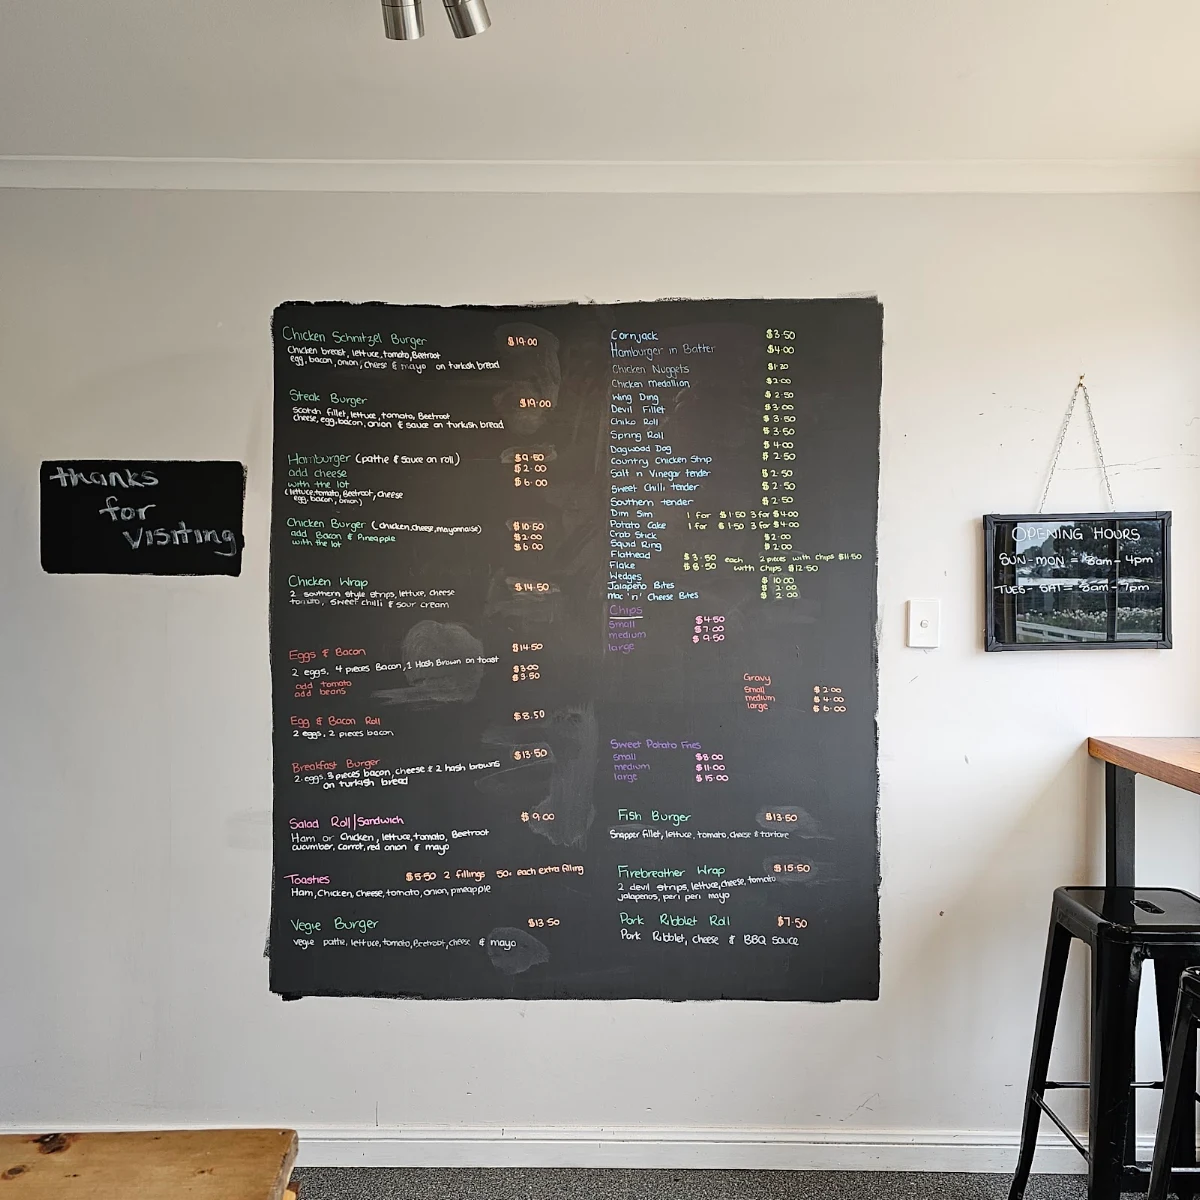 thanks
for
visiting
Chicken Schnitzel Burger $19.00
Chicken breast, lettuce, tomato, Beetroot
egg, bacon, onion, cheese & mayo on turkish bread
Steak Burger $19.00
Scotch fillet, lettuce, tomato, Beetroot
cheese, egg, bacon, onion & sauce on turkish bread
Hamburger (pathe & sauce on roll) $9.50
add cheese $2.00
with the lot $6.00
(lettuce, tomato, Beetroot, cheese
egg, bacon, onion)
Chicken Burger (chicken, cheese, mayonnaise) $10.50
add Bacon & Pineapple $2.00
with the lot $6.00
Chicken Wrap $14.50
2 southern style strips, lettuce, cheese
tomato, sweet chilli & sour cream
Eggs & Bacon $14.50
2 eggs, 4 pieces Bacon, 1 Hash Brown on toast
add tomato $3.00
add beans $3.50
Egg & Bacon Roll $8.50
2 eggs, 2 pieces bacon
Breakfast Burger $13.50
2 eggs, 3 pieces bacon, cheese & 2 hash browns
on turkish bread
Salad Roll/Sandwich $9.00
Ham or Chicken, lettuce, tomato, Beetroot
cucumber, carrot, red onion & mayo
Toasties $5.50 2 fillings 50c each extra filling
Ham, Chicken, cheese, tomato, onion, pineapple
Vegie Burger $13.50
vegie pathe, lettuce, tomato, Beetroot, cheese & mayo
Cornjack $3.50
Hamburger in Batter $4.00
Chicken Nuggets $1.20
Chicken Medallion $2.00
Wing Ding $2.50
Devil Fillet $3.00
Chiko Roll $3.50
Spring Roll $3.50
Dagwood Dog $4.00
Country Chicken Strip $2.50
Salt n Vinegar tender $2.50
Sweet Chilli tender $2.50
Southern tender $2.50
Dim Sim 1 for $1.50 3 for $4.00
Potato Cake 1 for $1.50 3 for $4.00
Crab Stick $2.00
Squid Ring $2.00
Flathead $3.50 each 2 pieces with chips $11.50
Flake $8.50 with chips $12.50
Wedges $10.00
Jalapeño Bites $2.00
Mac 'n' Cheese Bites $2.00
Chips
small $4.50
medium $7.00
large $9.50
Gravy
small $2.00
medium $4.00
large $6.00
Sweet Potato Fries
small $8.00
medium $11.00
large $15.00
Fish Burger $13.50
Snapper fillet, lettuce, tomato, cheese & tartare
Firebreather Wrap $15.50
2 devil strips, lettuce, cheese, tomato
jalapenos, peri peri mayo
Pork Ribblet Roll $7.50
Pork Ribblet, cheese & BBQ sauce
OPENING HOURS
SUN-MON = 8am - 4pm
TUES-SAT = 8am - 7pm